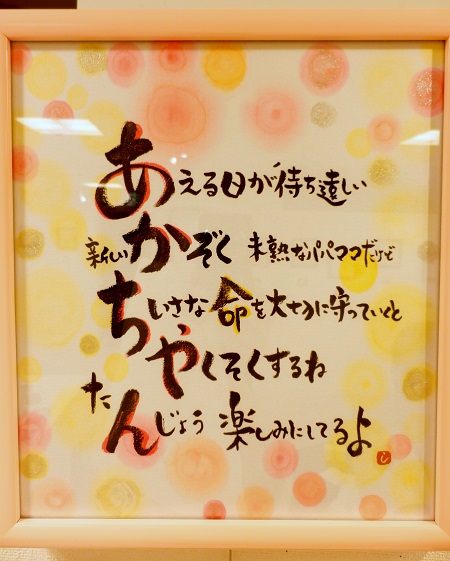 あえる日が待ち遠しい
新しいかぞく 未熟なパパママだけど
ちいさな命を大切に守っていくと
やくそくするね
たんじょう 楽しみにしてるよ
し